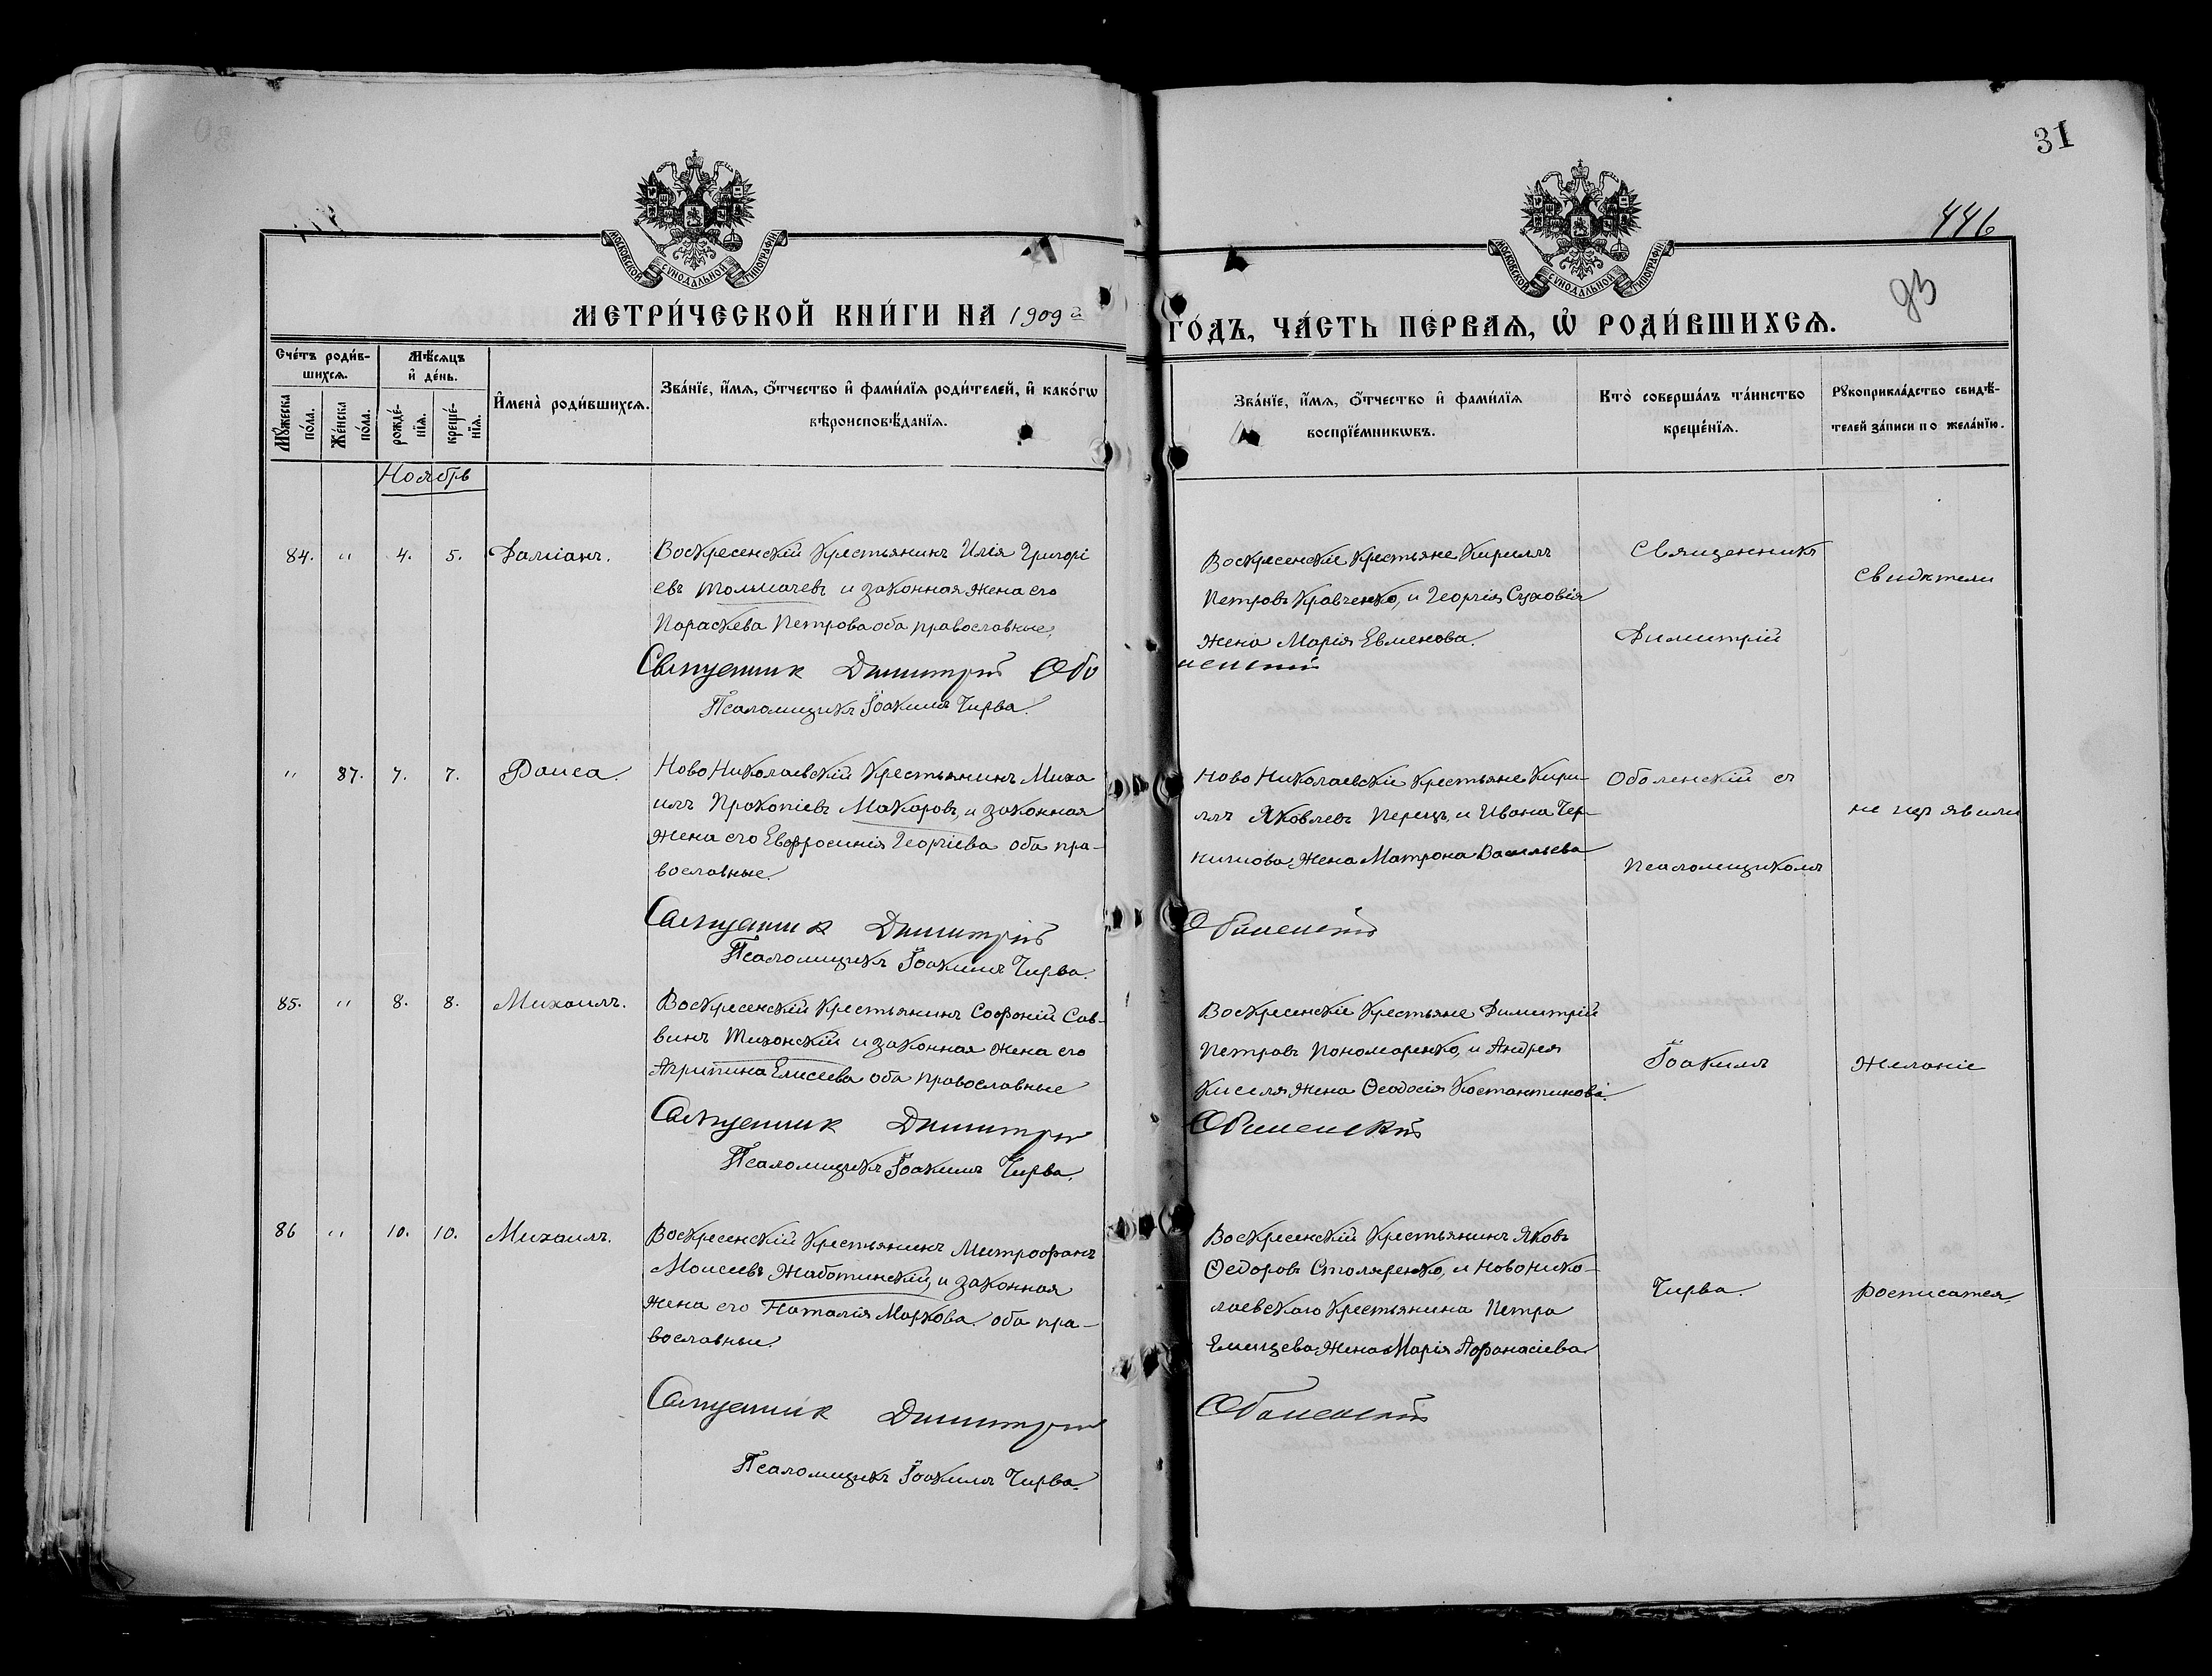 31
446
93
МОСКОВСКОЙ СѴНОДАЛЬНОЙ ТИПОГРАФІИ
МОСКОВСКОЙ СѴНОДАЛЬНОЙ ТИПОГРАФІИ
МЕТРИ́ЧЕСКОЙ КНИ́ГИ НА 1909й
ГО́ДЪ, ЧА́СТЬ ПЕ́РВАѦ, Ѡ҆ РОДИ́ВШИХСѦ.
Сче́тъ роди́в-
шихсѧ.
Мѣ́сѧцъ
и҆ де́нь.
И҆мена̀ роди́вшихсѧ.
Зва́нїе, и҆́мѧ, о҆́тчество и҆ фами́лїѧ роди́телей, и҆ како́гѡ
вѣроисповѣ́данїѧ.
Мꙋ́жеска по́ла.
Же́нска по́ла.
рожде́-нїѧ.
креще́-нїѧ.
Зва́нїе, и҆́мѧ, о҆́тчество и҆ фами́лїѧ
воспрїе́мникѡвъ.
Кто̀ соверша́лъ та́инство
креще́нїѧ.
Рꙋкоприкла́дство свидѣ́-
телей за́писи по жела́нїю.
Ноябрь
84. " 4. 5. Даміанъ.
Воскресенскій Крестьянинъ Илія Григорі
евъ Толмачевъ и законная жена его
Параскева Петрова оба православные.
Священник Димитрий Обо
Псаломщикъ Іоакимъ Чирва.
Воскресенскіе Крестьяне Кириллъ
Петровъ Кравченко, и Георгія Суховія
жена Марія Евменова.
ленский
Священникъ
Димитрій
Свидѣтели
" 87. 7. 7. Раиса.
Ново Николаевскій Крестьянинъ Миха
илъ Прокопіевъ Макаровъ, и законная
жена его Евфросинія Георгіева оба пра-
вославные.
Священник Димитрий
Псаломщикъ Іоакимъ Чирва.
Ново Николаевскіе Крестьяне Кири-
ллъ Яковлевъ Перецъ, и Ивана Чер-
никова жена Матрона Васильева
Оболенский
Оболенскій съ
Псаломщикомъ
не изъявили
85. " 8. 8. Михаилъ.
Воскресенскій Крестьянинъ Софоній Сав-
винъ Тихонскій и законная жена его
Агрипина Елисеева оба православные
Священник Димитрий
Псаломщикъ Іоакимъ Чирва.
Воскресенскіе Крестьяне Димитрій
Петровъ Пономаренко, и Андрея
Киселя жена Ѳеодосія Костантинова.
Оболенский
Іоакимъ
Желаніе
86 " 10. 10. Михаилъ.
Воскресенскій Крестьянинъ Митрофанъ
Моисеевъ Жаботинскій, и законная
жена его Наталія Маркова. оба пра-
вославные.
Священник Димитрий
Псаломщикъ Іоакимъ Чирва.
Воскресенскій Крестьянинъ Яковъ
Ѳедоровъ Столяренко, и Ново Нико-
лаевскаго Крестьянина Петра
Емицева жена Марія Афанасіева
Оболенский
Чирва.
росписатся.